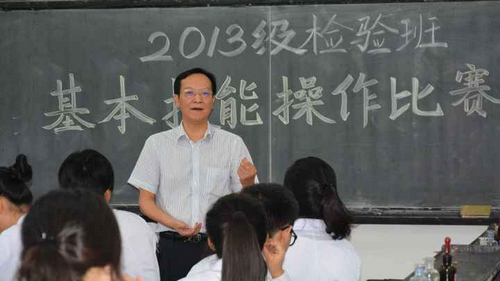 2013级检验班
基本技能操作比赛